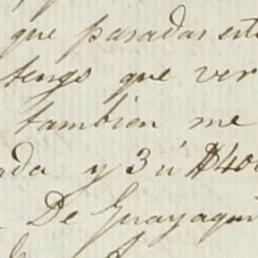 que pasadas est
tengo que ver
tambien me
ada y 3 ú $400
De Guayaqui